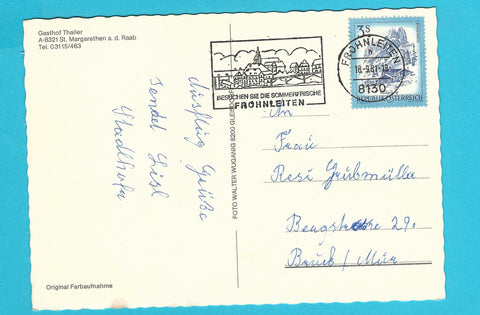 Gasthof Thaller
A-8321 St. Margarethen a. d. Raab
Tel. 03115/463
BESUCHEN SIE DIE SOMMERFRISCHE
FROHNLEITEN
FROHNLEITEN
18.-9.81.-18
8130
3s
REPUBLIK ÖSTERREICH
Ausflug Grüße
sendet Lisl
FOTO WALTER WUGANIG 8200 GLEISDORF
An
Frau
Resi
Bergstrasse 29.
Bruck / Mur
Original Farbaufnahme